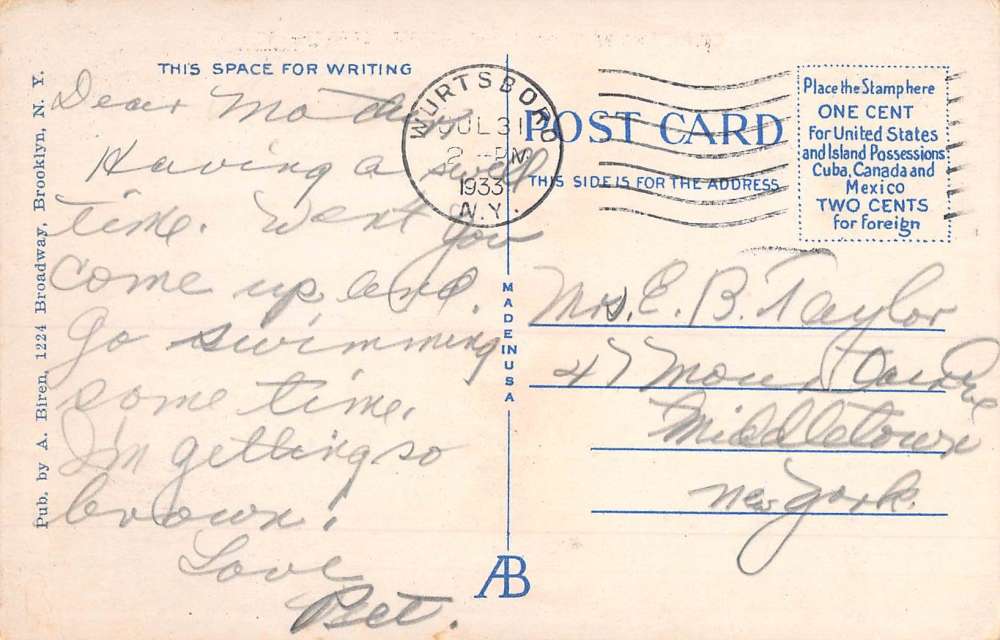 THIS SPACE FOR WRITING
Dear Mother
Having a swell
time. Went you
come up, and
go swimming
some time.
I'm getting so
brown.
Love
Bet.
Pub. by A. Biren, 1224 Broadway, Brooklyn, N. Y.
WURTSBORO
JUL 31
2 - PM
1933
N.Y.
MADE IN USA
AB
POST CARD
THIS SIDE IS FOR THE ADDRESS
Place the Stamp here
ONE CENT
for United States
and Island Possessions
Cuba, Canada and
Mexico
TWO CENTS
for Foreign
Mrs. E. B. Taylor
47 Mountain Ave
Middletown
New York.